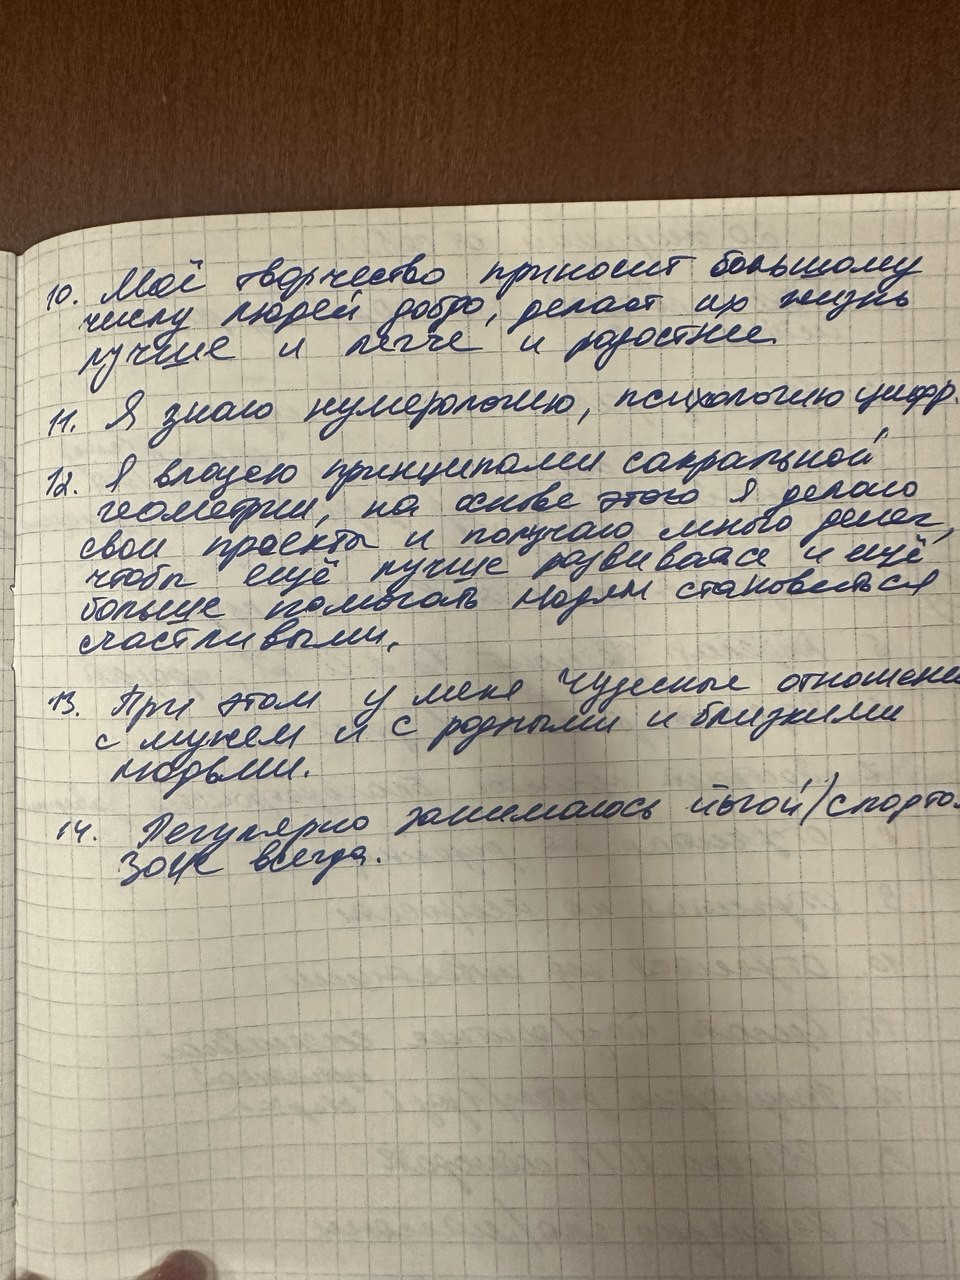 10. Моё творчество приносит большому
числу людей добро, делает их жизнь
лучше и легче и радостнее.
11. Я знаю нумерологию, психологию цифр.
12. Я владею принципами сакральной
геометрии, на основе этого я делаю
свои проекты и получаю много денег,
чтобы ещё лучше развиваться и ещё
больше помогать людям становиться
счастливыми.
13. При этом у меня чудесные отношени
с мужем и с родными и близкими
людьми.
14. Регулярно занимаюсь йогой/спорто
ЗОЖ всегда.